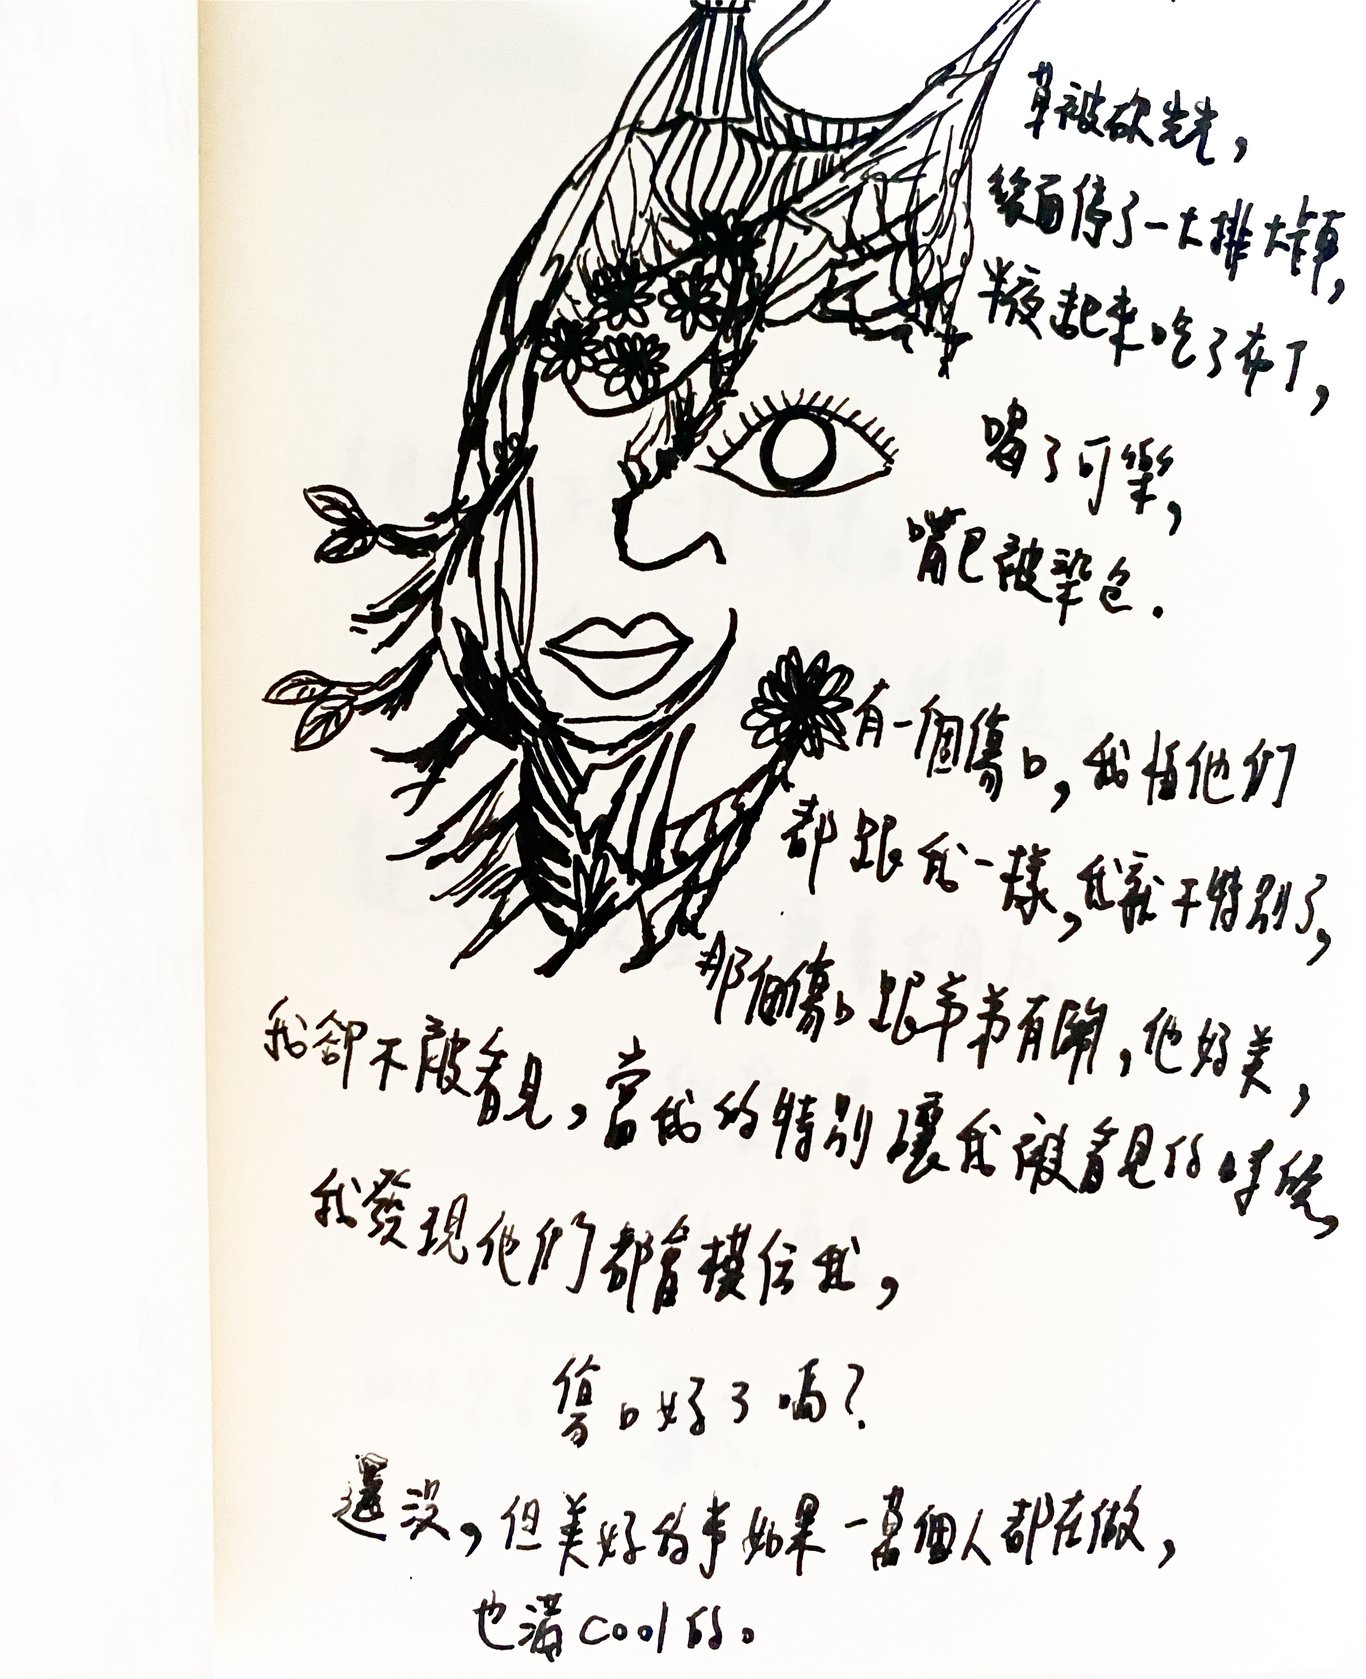 草被砍光光，
後面停了一大排大卡車，
半夜起來吃了布丁，
喝了可樂，
嘴巴被染色．
有一個傷口，我怕他們
都跟我一樣，我就不特別了，
那個傷口跟弟弟有關，他好美，
我卻不被看見，當我的特別讓我被看見的時候，
我發現他們都會模仿我，
傷口好了嗎？
還沒，但美好的事如果一萬個人都在做，
也滿cool的。